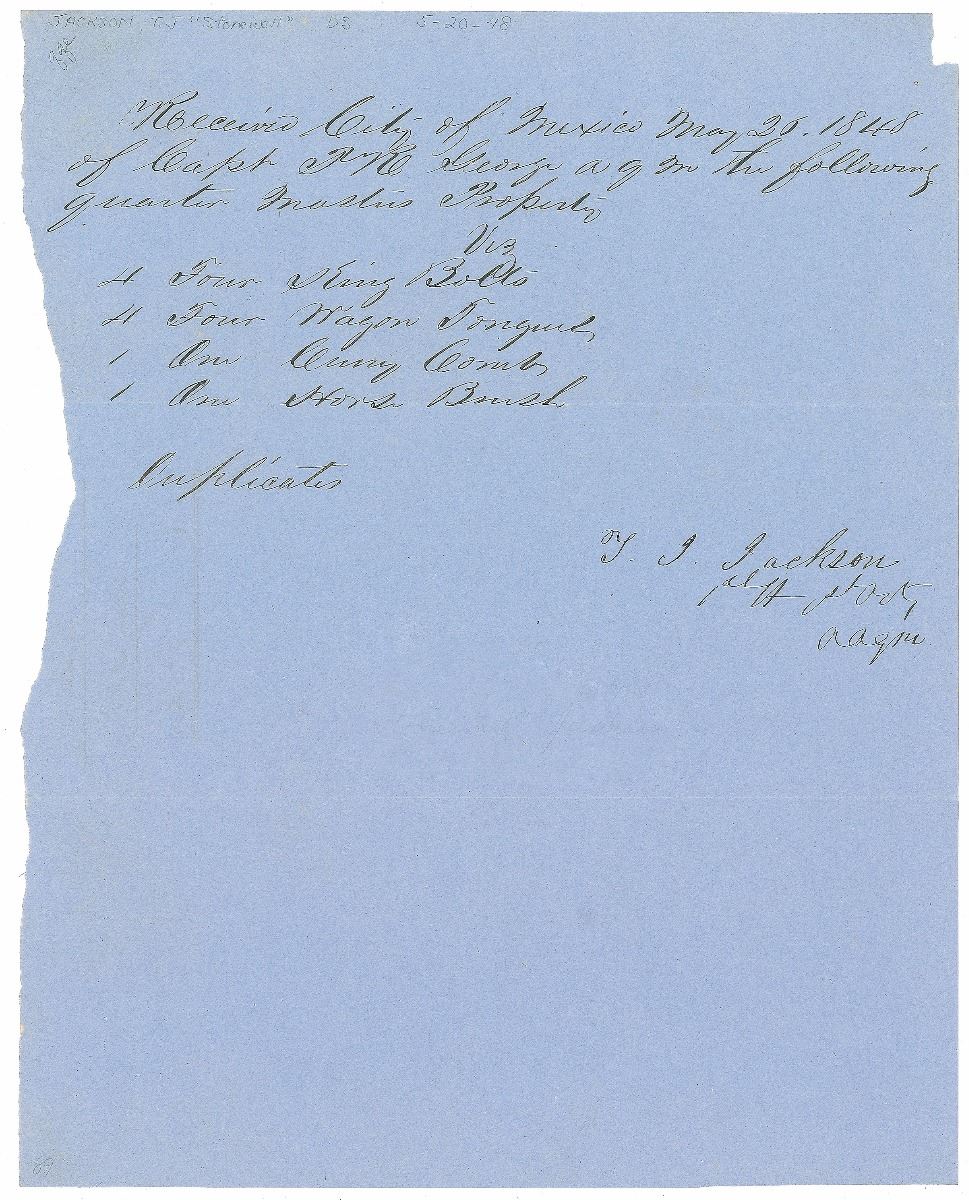 JACKSON, T.J. "Stonewall" DS 5-20-48
Received City of Mexico May 20. 1848
of Capt P M George a q m the following
quarter Masters Property
Viz
4 Four King Bolts
4 Four Wagon Tongues
1 One Curry Comb
1 One Horse Brush
Duplicates
T. J. Jackson
1st Arty
a a q m